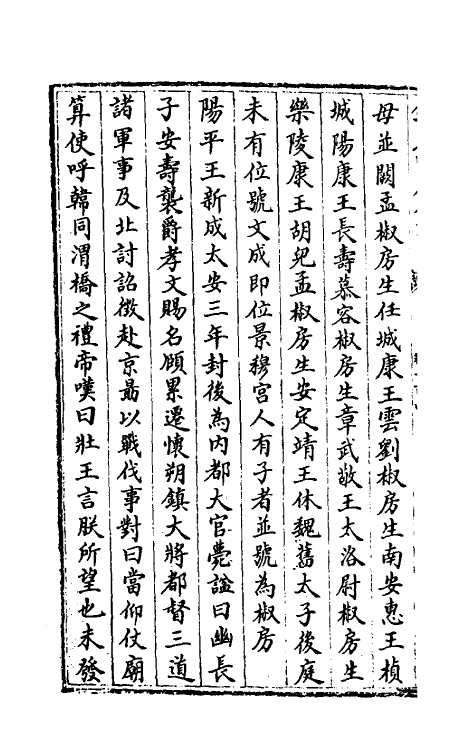 母並闕孟椒房生任城康王雲劉椒房生南安惠王楨
城陽康王長壽慕容椒房生章武敬王太洛尉椒房生
樂陵康王胡兒孟椒房生安定靖王休魏舊太子後庭
未有位號文成即位景穆宮人有子者並號為椒房
陽平王新成太安三年封後為内都大官薨諡曰幽長
子安壽襲爵孝文賜名頤累遷懷朔鎮大將都督三道
諸軍事及北討詔徵赴京勗以戰伐事對曰當仰仗廟
算使呼韓同渭橋之禮帝嘆曰壯王言朕所望也未發